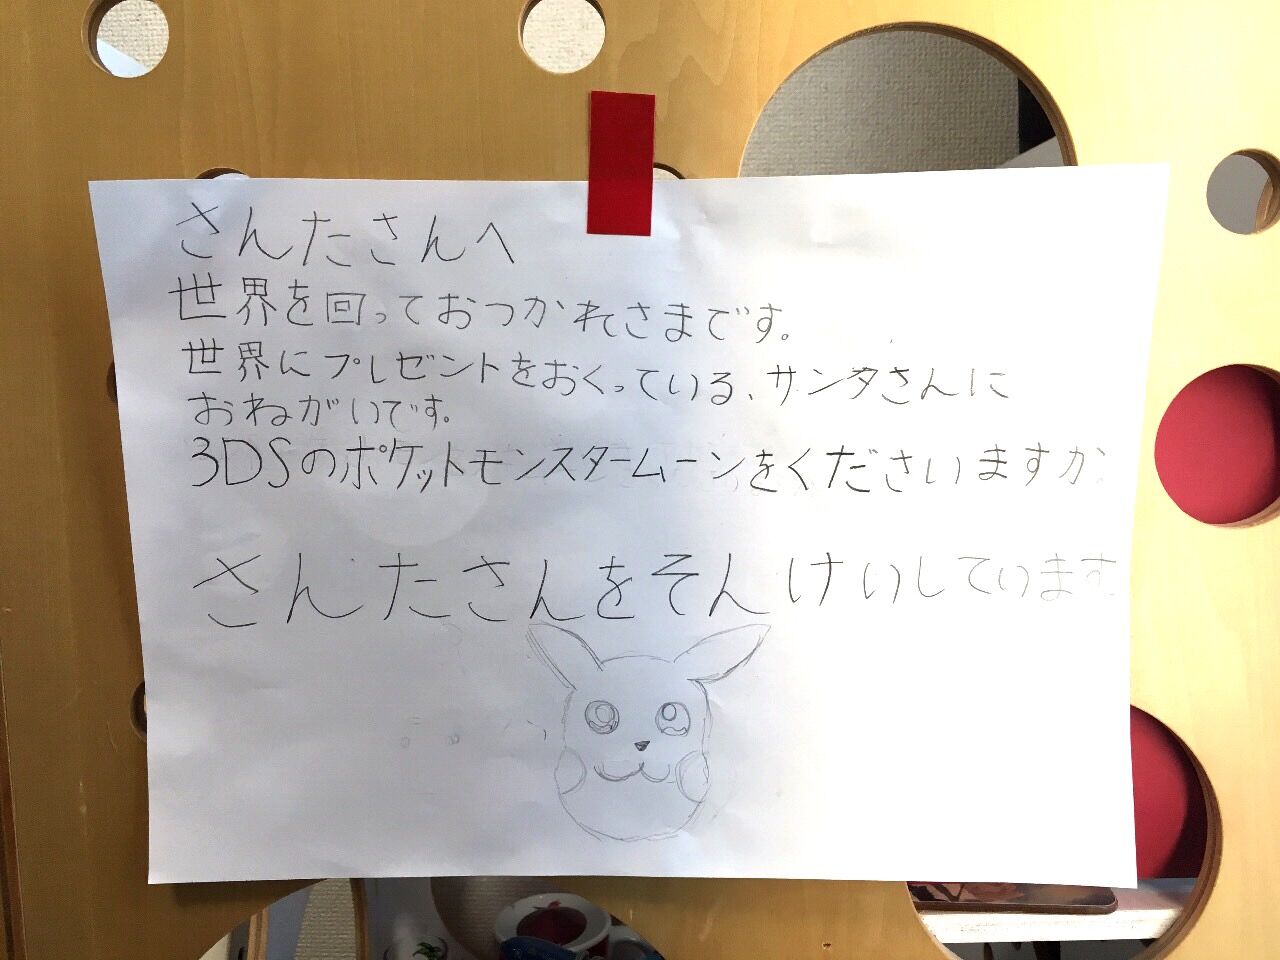 さんたさんへ
世界を回っておつかれさまです。
世界にプレゼントをおくっている、サンタさんに
おねがいです。
3DSのポケットモンスタームーンをくださいますか
さんたさんをそんけいしています